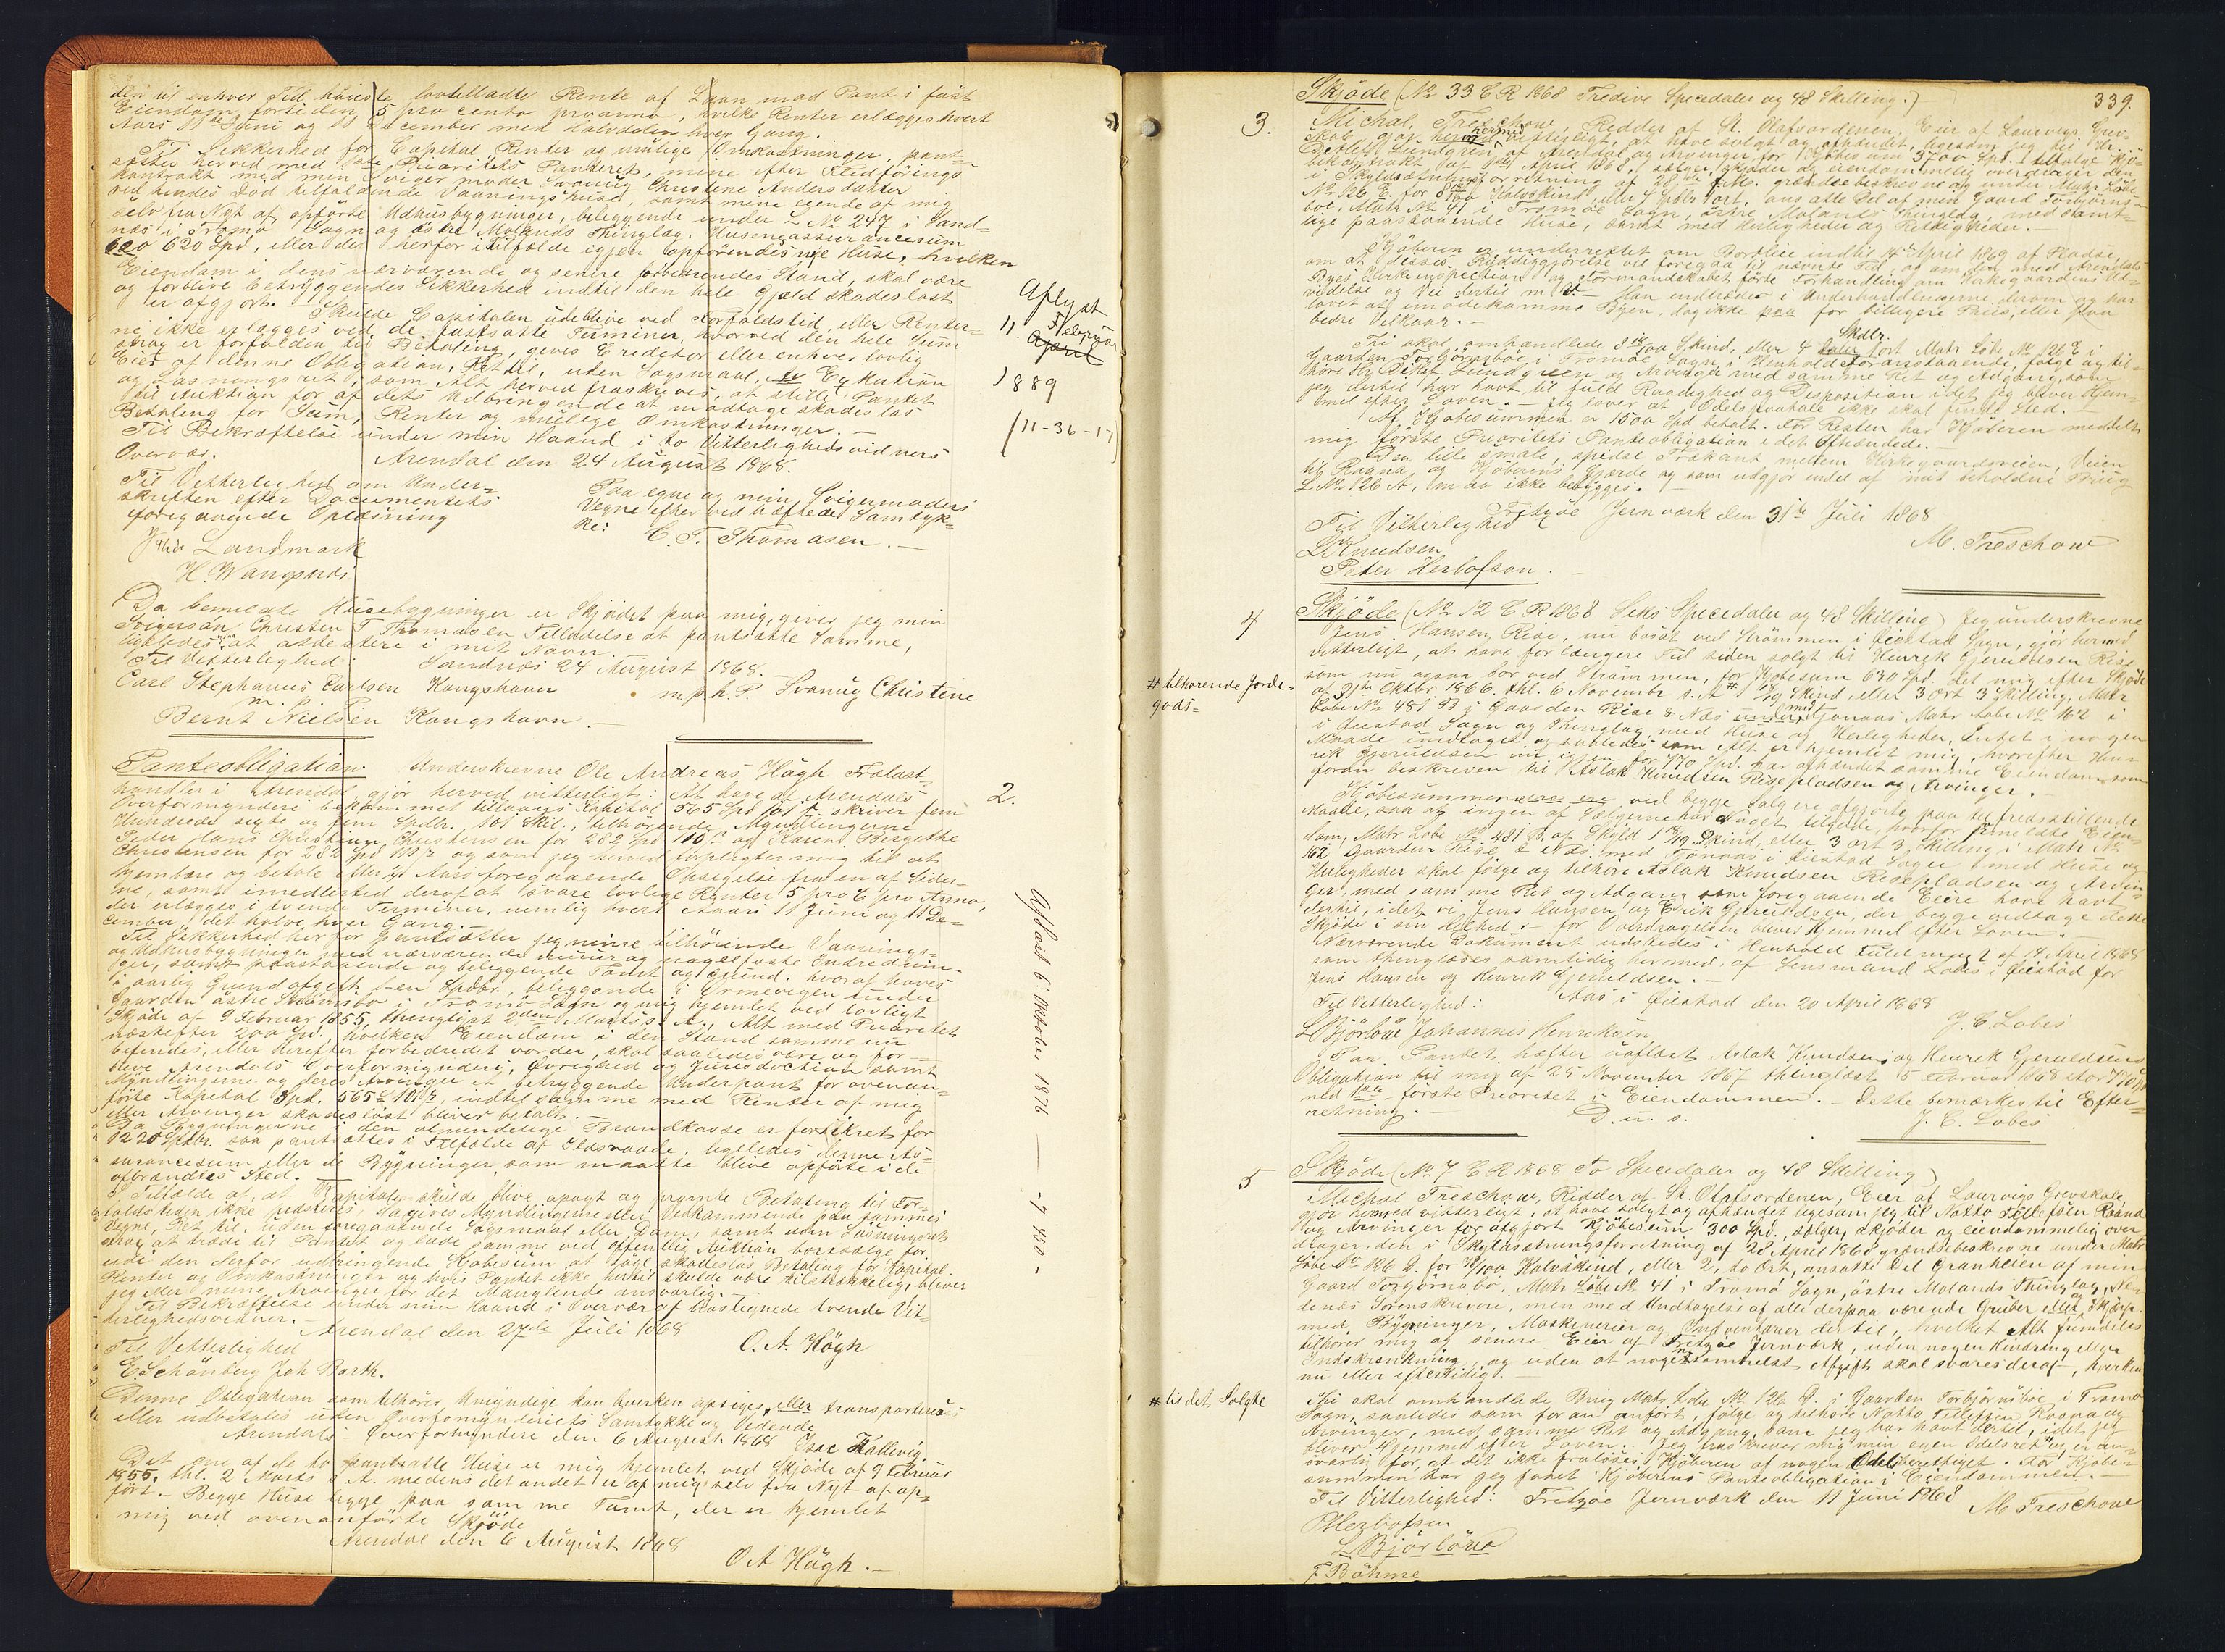 den til enhver Tid höieste lovtilladte Rente af Laan mod Pant i fast
Eiendom, fortiden 5 pro cento proanno, hvilke Renter erlægges hvert
Aars 11te Juni og 11 December med Halvdelen hver Gang.
Til Sikkerhed for Capital Renter og mulige Omkostninger, pant-
sættes herved med 1ste Prioritets Panteret, mine efter Klædförings-
kontrakt med min Sviger moder Svanüg Christine Andersdatter
ved hendes Död tilfaldende Vaaningshuse, samt mine eiende af mig
selv fra Nyt af opförte Udhusbygninger, beliggende under L No 247 i Sand-
næs i Tromö Sogn og östre Molands Thinglag. Husenesassurancesum
620 Spd, eller der herfor i Tilfælde igjen opförendes nye Huse, hvilken
Eiendom i dens nærværende og senere forbedrendes Stand, skal være
og forblive betryggendes Sikkerhed indtil den hele Gjæld skadeslöst
er afgjort. Skulde Capitalen udeblive ved Forfaldstid, eller Renter-
ne ikke erlægges ved de fastsatte Terminer, hvorved den hele Sum
strax er forfalden til Betaling, gives Creditor eller enhver lovlig
Eier af denne Obligation, Ret til, uden Sagsmaal, Exekution
og Løsningsret, som Alt herved fraskrives, at stille Pantet
til Auktion for af dets Udbringende at modtage skadeslös
Betaling for Sum, Renter og mulige Omkostninger.
Til Bekræftelse under min Haand i to Vitterlighedsvidners
Overvær.
Arendal den 24 August 1868.
Til Vitterlighed om Under-
skriften efter Documentets
foregaaende Oplæsning
Paa egne og min Svigermoders
Vegne efter vedhæftede Samtyk-
ke:
C. T. Thomasen.
Landmark
H. Wangsnds
Aflyst
11. Februar
April
1889
11-36-17
Da bemeldte Husebygninger er Skjödet paa mig, gives jeg min
Svigersön Christen T Thomasen Tilladelse at pantsætte Samme,
ligeledes at atdestere i mit Navn.
Til Vitterlighed: Sandnæs 24 August 1868.
Carl Stephanus Carlsen Kongshavn m.p.h.P. Svanüg Christine
Bernt Nielsen Kongshavn.
Panteobligation. Underskrevne Ole Andreas Högh Trelast-
handler i Arendal, gjör herved vitterligt: At have af Arendals
Overformynderi bekommet tillaans Kapital 565 Spd 101 β skriver fem
Hundrede sexti og fem Spdlr. 101 Skil., tilhörende Myndlingerne
Peder Hans Christian Christensen for 282 Spd 110 β og Karen Birgitte
Christensen for 282 Spd 111 β og som jeg herved forpligter mig til at
hjembære og betale efter ½ Aars foregaaende Opsigelse fra en af Sider-
ne, samt imedlertid deraf at svare lovlige Renter 5 pro C pro Anno,
der erlægges i tvende Terminer, nemlig hvert Aars 11 Juni og 11 De-
cember, det halve hver Gang.
2.
Aflæst 6. Oktober 1876 — -7-450-
Til Sikkerhed herfor pantsætter jeg mine tilhörende Vaanings-
og Udhusbygninger med nærværende muur og nagelfaste Indrednin-
ger, samt paastaaende og beliggende Tomt og Grund, hvoraf haves
i aarlig Grundafgift en Spdlr, beliggende i Ormevigen under
Gaarden östre i Tromö Sogn og mig hjemlet ved lovligt
Skjöde af 9 Februar 1855, thinglyst 2den Marts s. A., Alt med Prioritet
næstefter 200 Spd, hvilken Eiendom i den Stand samme nu
befindes, eller herefter forbedredet vorder, skal saaledes være og for-
blive Arendals Overformynderi, Övrighed og Jurisdiction samt
Myndlingerne og deres Arvinger et betryggende Underpant for ovenan-
förte Kapital Spd. 565 & 101 β, indtil samme med Renter af mig
eller Arvinger skadeslöst bliver betalt.
Da Bygningerne i den almindelige Brandkasse er forsikret for
1220 Spdlr. saa pantsættes i Tilfælde af Ildsvaade, ligeledes denne As-
surancesum eller de Bygninger, som maatte blive opförte i de
afbrændtes Sted.
I Tilfælde af, at Kapitalen skulde blive opsagt og promte Betaling til For-
faldstiden ikke præsteres, da gives Myndlingerne eller Vedkommende paa sammes
Vegne, Ret til, uden foregaaende Sagsmaal eller Dom, samt uden Lösningsret
strax at træde til Pantet og lade samme ved offentlig Auktion bortsælge for
udi den derfor udbringende Kjøbesum at söge skadeslös Betaling for Kapital
Renter og Omkostninger og hvis Pantet ikke hertil skulde være tilstrækkelig, bliver
jeg eller mine Arvinger for det Manglende ansvarlig.
Til Bekræftelse under min Haand i Overvær af hostegnede tvende Vit-
terlighedsvidner.
Arendal den 27de Juli 1868
Til Vitterlighed
O. A. Högh
E. Schönberg Joh Barth.
Denne Obligation som tilhörer Umyndige kan hverken opsiges, eller transporteres
eller udbetales uden Overformynderiets Samtykke og Vidende
Arendals Overformynderi den 6 August 1868 Isac Kallevig
Det ene af de to pantsatte Huse er mig hjemlet ved Skjöde af 9 Februar
1855, thl. 2 Marts s. A. medens det andet er af mig selv fra Nyt af op-
fört. - Begge Huse ligge paa samme Tomt, der er hjemlet
mig ved ovenanförte Skjöde
Arendal den 6 August 1868
O A Högh.
339.
3.
Skjöde (No 33 C R 1868 Tredive Speciedaler og 48 Skilling.)
Michal Treschow, Ridder af St. Olafsordenen, Eier af Laurvigs Grev-
skab, gjör hermed vitterligt, at have solgt og afhændet, ligesom jeg til Hr.
Detlef Lundgren af Arendal og Arvinger, for Kjöbesum 3700 Spd. i Ifölge Kjö-
bekontrakt af April 1868, sælger, skjöder og eiendommelig overdrager den
i Skyldsætningsforretning af 28 grændsebeskrevne og under Matr Löbe
No 126 E for Halvskind, eller 4 Spdlr Ort, ansatte Del af min Gaard Torbjörns-
boe, Matr No 41 i Tromö Sogn, östre Molands Thinglag, med samt-
lige paastaaende Huse, samt med Herligheder og Rettigheder.
Kjöberen er underrettet om Bortleie indtil 14de April 1869 af Pladse,
om at disses Ryddiggjörelse vil foregaa til nævnte Tid, og om den med Arendals
Byes Kirkeinspection og Formandskabet förte Forhandling om Kirkegaardens Ud-
videlse og Vei dertil m. v. - Han indtræder i Underhandlingerne derom og har
lovet at imödekomme Byen, dog ikke paa for billigere Priis, eller paa
bedre Vilkaar.
Thi skal omhandlede 8 Skind, eller 4 Spdlr. ort Matr Löbe No 126 E i
Gaarden Torbjörnsboe i Tromöe Sogn, i Henhold Foranstaaende, følge og til-
höre Hr Detlef Lundgren og Arvinger med samme Ret og Adgang, som
jeg dertil har havt til fuld Raadighed og Disposition idet jeg bliver Hjem-
mel efter Loven. - Jeg lover at Odelspaatale ikke skal finde Sted.
Af Kjöbesummen er 1500 Spd betalt. For Resten har Kjöberen meddelt
mig förste Prioritets Panteobligation i det Afhændede.
Den lille smale, spidse Trekant mellem Kirkegaardsveien, Veien
til Roana, og Kjöberens Gjerde og som udgjör endel af mit beholdne Brug
L No 126 A, maa ikke bebygges.
Fritzöe Jernværk den 31te Juli 1868
Til Vitterlighed
M. Treschow
L Knudsen
Peter Herlofson.
4
Skjöde (No 12 C R 1868 Seks Speciedaler og 48 Skilling) Jeg underskrevne
Jens Hansen Rise, nu bosat ved Strömmen i Öiestad Sogn, gjör hermed
vitterligt, at have for længere Tid siden solgt til Henrik Gjeruldsen Rise
som nu ogsaa bor ved Strömmen, for Kjøbesum 630 Spd, det mig efter Skjöde
af 31te Oktbr. 1866, thl. 6 November s. A # 1 Skind, eller 3 Ort 3 Skilling, Matr
Löbe No 481 B i Gaarden Rise & Næs med Tjønaas Matr Löbe No 162 i
# tilhørende Jorde-
gods-
i Öiestad Sogn og Thinglag, med Huse og Herligheder, Intet i nogen
Maade undtaget og saaledes som Alt er hjemlet mig, hvorefter Hen-
rik Gjeruldsen nu igjen for 770 Spd. har afhændet samme Eiendom som
foran beskreven til Aslak Knudsen Risepladsen og Arvinger.
Kjöbesummen er ved begge Salgene afgjorte paa tilfredsstillende
Maade, saa at ingen af Sælgerne har Noget tilgode, hvorfor bemeldte Eien-
dom, Matr Löbe No 481 B. af Skyld 1 Skind, eller 3 ort 3 Skilling i Matr No
162, Gaarden Rise & Næs med Tjönaas i Öiestad Sogn med Huse og
Herligheder skal følge og tilhöre Aslak Knudsen Risepladsen og Arvin-
ger, med samme Ret og Adgang som foregaaende Eiere have havt
dertil, idet vi Jens Hansen og Henrik Gjeruldsen, der begge vedtage dette
Skjöde i sin Helhed - for Overdragelsen bliver Hjemmel efter Loven.
Nærværende Dokument udstedes i Henhold Fuldmagt af 14 April 1868
som thinglæses samtidig hermed, af Lensmand Lobes i Öiestad for
Jens Hansen og Henrik Gjeruldsen.
Til Vitterlighed: Aas i Öiestad den 20 April 1868
J. C. Lobes
L Björlöw Johannes Henriksen
Paa Pantet hæfter uaflæst Aslak Knudsens og Henrik Gjeruldsens
Obligation til mig af 25 November 1867 thinglæst 5 Februar 1868 stor 770 Spd
med 1ste förste Prioritet i Eiendommen. - Dette bemærkes til Efter-
retning. D. u. s.
J. C. Lobes
5
Skjöde (No 7 C R 1868 To Speciedaler og 48 Skilling)
Michal Treschow, Ridder af St. Olafsordenen, Eier af Laurvigs Grevskab,
gjör hermed vitterligt, at have solgt og afhændet ligesom jeg til Natto Tellefsen Roana
og Arvinger for afgjort Kjöbesum 300 Spd., sælger, skjöder og eiendommelig over
drager, den i Skyldsætningsforretning af 28 April 1868 grændsebeskrevne under Matr
Löbe No 126 D. for Halvskind, eller 2, to Ort, ansatte Del Granheien af min
Gaard Torbjörnsbö, Matr Löbe No 41 i Tromö Sogn, östre Molands Thinglag, Ne-
denæs Sorenskriveri, men med Undtagelse af alle derpaa værende Gruber eller Skjærp
med Bygninger, Maskinerier og Inventarier dertil, hvilket Alt fremdeles
tilhörer mig og senere Eier af Fritzöe Jernværk, uden nogen Hindring eller
Indskrænkning, og uden at nogetsomhelst Afgift skal svares deraf, hverken
nu eller eftertidigt.
Thi skal omhandlede Brug Matr Löbe No 126 D. i Gaarden Torbjörnsboe i Tromö
Sogn, saaledes som foran anfört, følge og tilhöre Natto Tellefsen Roana og
# til det Solgte
Arvinger, med samme Ret og Adgang, som jeg har havt dertil, idet jeg
bliver Hjemmel efter Loven. Jeg fraskriver mig min egen Odelsret og er an-
svarlig for, at Dit ikke fralöses Kjöberen af nogen Odelsberettiget. For Kjöbe-
summen har jeg faaet Kjöberens Panteobligation i Eiendommen.
Til Vitterlighed: Fritzöe Jernværk den 11 Juni 1868
M Treschow
P Herlofsen
L Björlöw
F Böhme